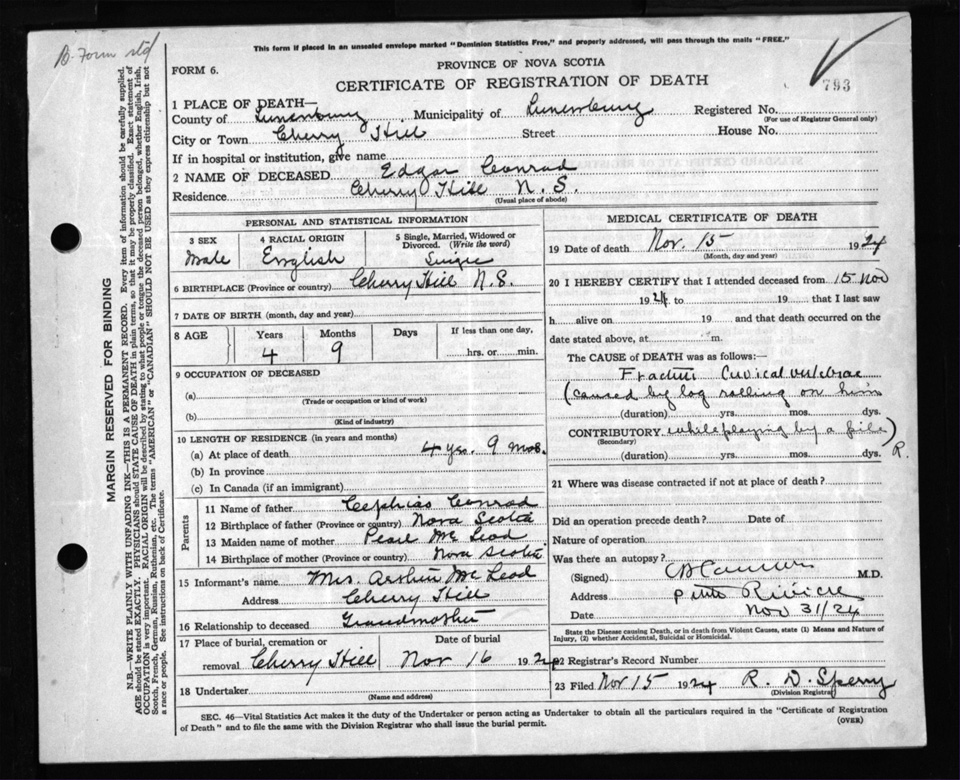 B. Form std
This form if placed in an unsealed envelope marked "Dominion Statistics Free," and properly addressed, will pass through the mails "FREE."
PROVINCE OF NOVA SCOTIA
FORM 6.
CERTIFICATE OF REGISTRATION OF DEATH
793
1 PLACE OF DEATH—
County of Lunenburg Municipality of Lunenburg Registered No.
(For use of Registrar General only)
City or Town Cherry Hill Street House No.
If in hospital or institution, give name
2 NAME OF DECEASED Edgar Conrad
Residence Cherry Hill N. S.
(Usual place of abode)
PERSONAL AND STATISTICAL INFORMATION
3 SEX 4 RACIAL ORIGIN 5 Single, Married, Widowed or Divorced. (Write the word)
Male English Single
6 BIRTHPLACE (Province or country) Cherry Hill N.S.
7 DATE OF BIRTH (month, day and year)
8 AGE Years Months Days If less than one day,
4 9 hrs. or min.
9 OCCUPATION OF DECEASED
(a)
(Trade or occupation or kind of work)
(b)
(Kind of industry)
10 LENGTH OF RESIDENCE (in years and months)
(a) At place of death 4 yrs. 9 mos.
(b) In province
(c) In Canada (if an immigrant)
Parents
11 Name of father Cephias Conrad
12 Birthplace of father (Province or country) Nova Scotia
13 Maiden name of mother Pearl McLeod
14 Birthplace of mother (Province or country) Nova Scotia
15 Informant's name Mrs. Arthur McLeod
Address Cherry Hill
16 Relationship to deceased Grandmother
17 Place of burial, cremation or Date of burial
removal Cherry Hill Nov 16 1924
18 Undertaker
(Name and address)
MEDICAL CERTIFICATE OF DEATH
19 Date of death Nov. 15 1924
(Month, day and year)
20 I HEREBY CERTIFY that I attended deceased from 15 Nov
1924 to 19 that I last saw
h alive on 19 and that death occurred on the
date stated above, at m.
The CAUSE of DEATH was as follows:—
Fracture Cervical vertebrae
(caused by log rolling on him
(duration) yrs. mos. dys.
CONTRIBUTORY while playing by a pile)
(Secondary)
(duration) yrs. mos. dys. R.
21 Where was disease contracted if not at place of death?
Did an operation precede death? Date of
Nature of operation
Was there an autopsy?
(Signed) M.D.
Address Petite Riviere
Date Nov 31/24
State the Disease causing Death, or in death from Violent Causes, state (1) Means and Nature of
Injury, (2) whether Accidental, Suicidal or Homicidal.
22 Registrar's Record Number
23 Filed Nov 15 1924 R. D. Sperry
(Division Registrar)
SEC. 46—Vital Statistics Act makes it the duty of the Undertaker or person acting as Undertaker to obtain all the particulars required in the "Certificate of Registration
of Death" and to file the same with the Division Registrar who shall issue the burial permit.
(OVER)
MARGIN RESERVED FOR BINDING
N.B.—WRITE PLAINLY WITH UNFADING INK—THIS IS A PERMANENT RECORD. Every item of information should be carefully supplied.
AGE should be stated EXACTLY. PHYSICIANS should STATE CAUSE OF DEATH in plain terms, so that it may be properly classified. Exact statement of
OCCUPATION is very important. RACIAL ORIGIN will be described by stating to what people or tongue the deceased person belonged, whether English, Irish,
Scotch, French, German, Russian, Ruthenian, etc. The terms "AMERICAN" or "CANADIAN" SHOULD NOT BE USED as they express citizenship but not
a race or people. See instructions on back of Certificate.